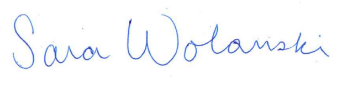 Sara Wolanski